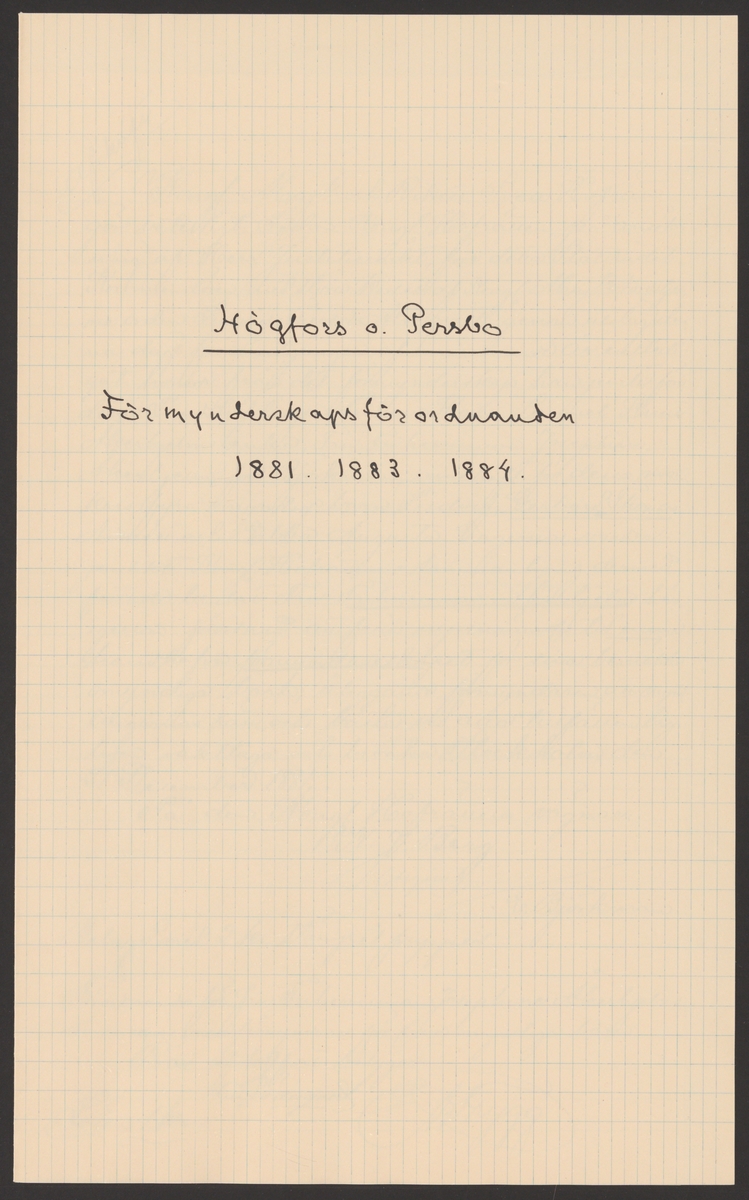 Högfors o. Persbo
Förmynderskapsförordnanden
1881. 1883. 1884.